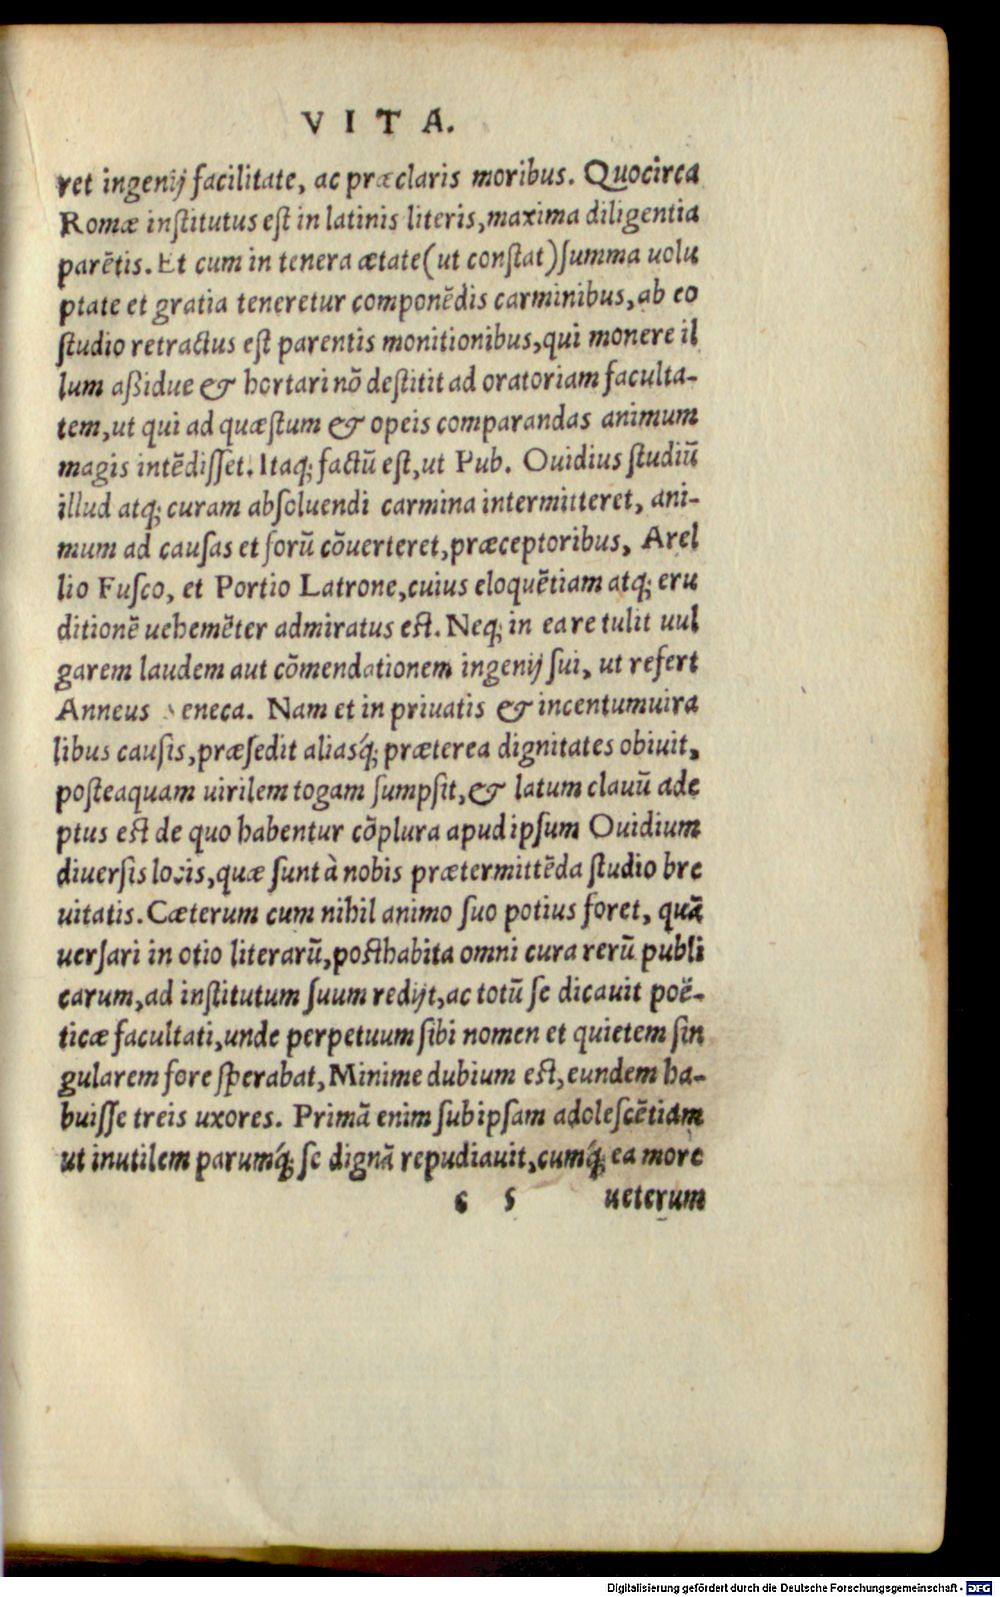 VITA.
ret ingenij facilitate, ac præclaris moribus. Quocirca
Romæ inſtitutus eſt in latinis literis, maxima diligentia
parẽtis. Et cum in tenera ætate (ut conſtat) ſumma uolu
ptate et gratia teneretur componẽdis carminibus, ab eo
ſtudio retractus eſt parentis monitionibus, qui monere il
lum aßidue & hortari nõ deſtitit ad oratoriam faculta-
tem, ut qui ad quæſtum & opeis comparandas animum
magis intẽdiſſet. Itaq; factũ eſt, ut Pub. Ouidius ſtudiũ
illud atq; curam abſoluendi carmina intermitteret, ani-
mum ad cauſas et forũ cõuerteret, præceptoribus, Arel
lio Fuſco, et Portio Latrone, cuius eloquẽtiam atq; eru
ditionẽ uehemẽter admiratus eſt. Neq; in ea re tulit uul
garem laudem aut cõmendationem ingenij ſui, ut refert
Anneus eneca. Nam et in priuatis & incentumuira
libus cauſis, præſedit aliasq́; præterea dignitates obiuit,
poſteaquam uirilem togam ſumpſit, & latum clauũ ade
ptus eſt de quo habentur cõplura apud ipſum Ouidium
diuerſis locis, quæ ſunt à nobis prætermittẽda ſtudio bre
uitatis. Cæterum cum nihil animo ſuo potius foret, quã
uerſari in otio literarũ, poſthabita omni cura rerũ publi
carum, ad inſtitutum ſuum redijt, ac totũ ſe dicauit poë-
ticæ facultati, unde perpetuum ſibi nomen et quietem ſin
gularem fore ſperabat, Minime dubium eſt, eundem ha-
buiſſe treis uxores. Primã enim ſub ipſam adoleſcẽtiam
ut inutilem parumq́; ſe dignã repudiauit, cumq́; ea more
c 5 ueterum
Digitalisierung gefördert durch die Deutsche Forschungsgemeinschaft - DFG